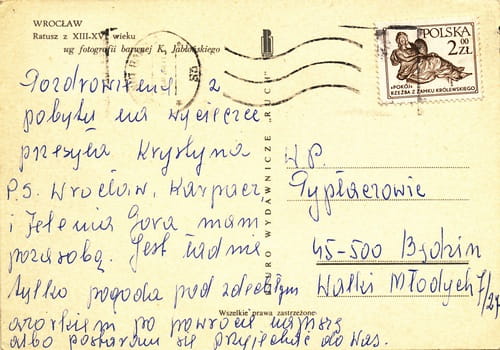 WROCŁAW
Ratusz z XIII-XV wieku
wg fotografii barwnej K. Jabłońskiego
POLSKA
2 00 ZŁ
«POKÓJ»
RZEŹBA Z ZAMKU KRÓLEWSKIEGO
Pozdrowienia z
pobytu na wycieczce
przesyła Krystyna
P.S. Wrocław, Karpacz,
i Jelenia Góra mam
poza sobą. Jest ładnie
tylko pogoda pod zdechłym
azorkiem po powrocie napiszę
albo postaram się przyjechać do Was.
BIURO WYDAWNICZE „RUCH"
W.P.
45-500 Będzin
Walki Młodych 7/27
Wszelkie prawa zastrzeżone